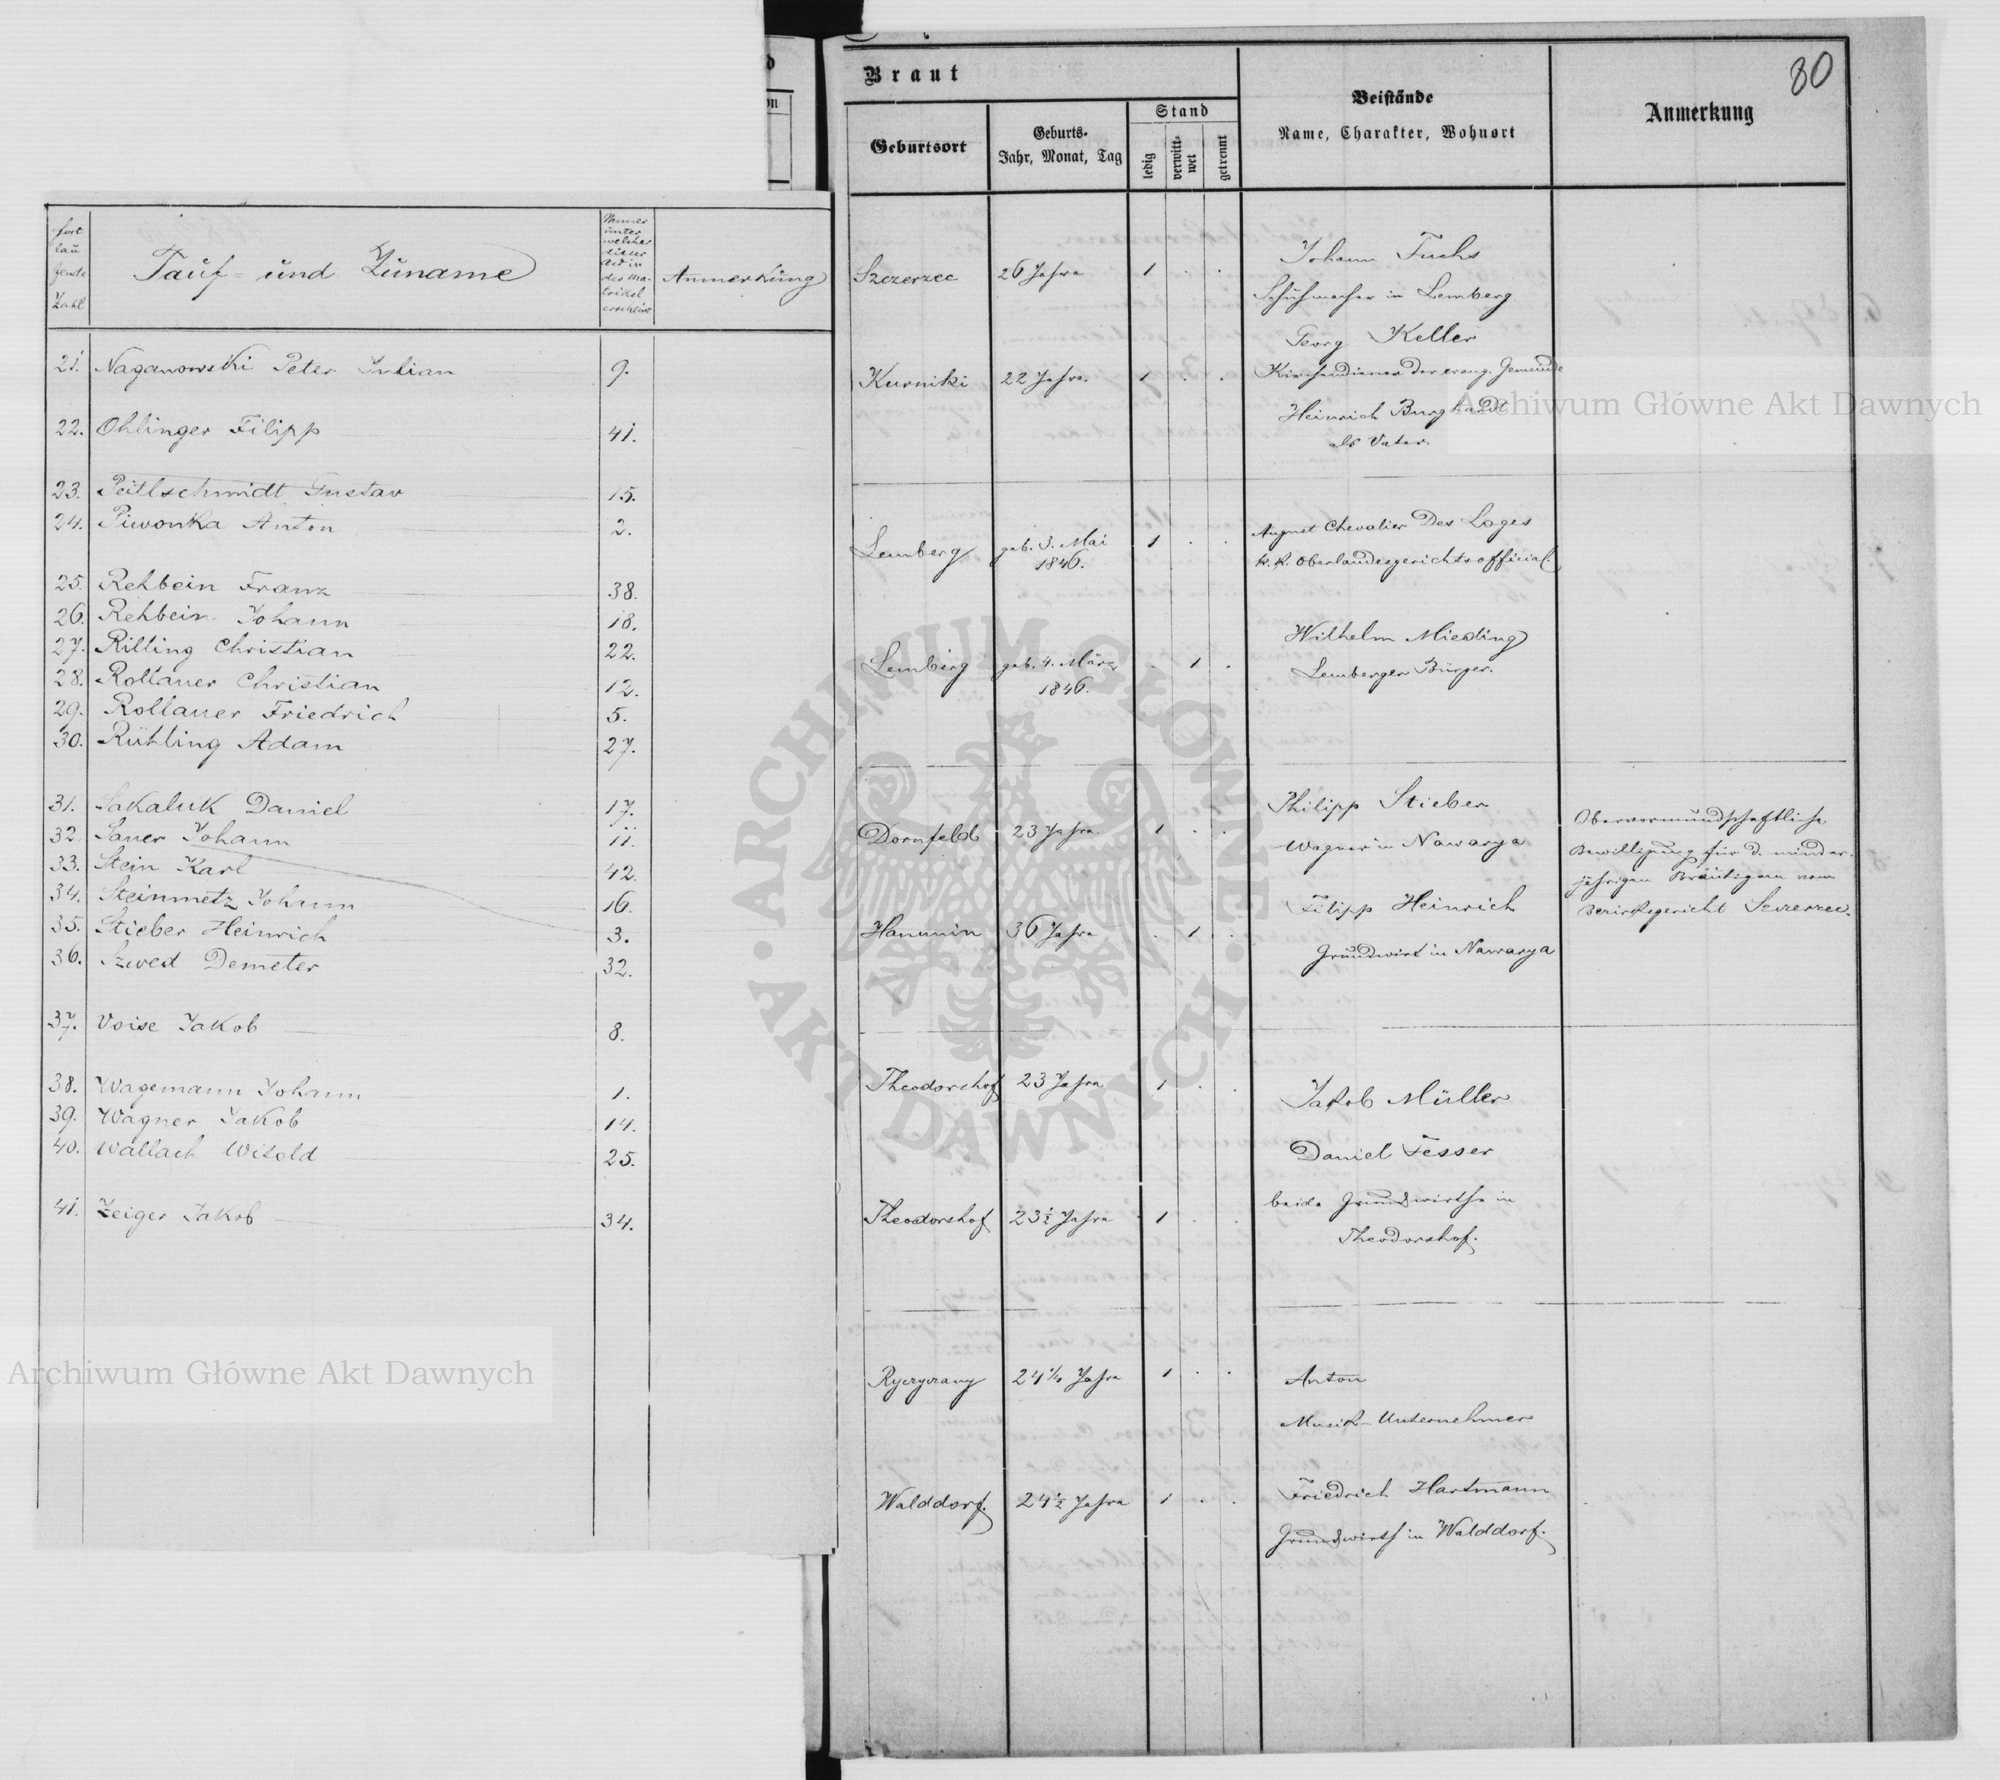 80
fort
lau
fende
Zahl
Tauf- und Zuname
Numer
unter
welcher
dieser
Act in
der Ma-
trikel
erscheint
Anmerkung
21. Naganowski Peter Julian 9.
22. Ohlinger Filipp 41.
23. Peitlschmidt Gustav 15.
24. Piwonka Anton 2.
25. Rehbein Franz 38.
26. Rehbein Johann 18.
27. Rilling Christian 22.
28. Rollauer Christian 12.
29. Rollauer Friedrich 5.
30. Rühling Adam 27.
31. Sakaluk Daniel 17.
32. Sauer Johann 11.
33. Stein Karl 42.
34. Steinmetz Johann 16.
35. Stieber Heinrich 3.
36. Szwed Demeter 32.
37. Voise Jakob 8.
38. Wagemann Johann 1.
39. Wagner Jakob 14.
40. Wallach Witold 25.
41. Zeiger Jakob 34.
Braut
Geburtsort
Geburts-
Jahr, Monat, Tag
Stand
ledig
verwitt-
wet
getrennt
Beistände
Name, Charakter, Wohnort
Anmerkung
Szczerzec 26 Jahre 1 . .
Johann Fuchs
Schuhmacher in Lemberg
Georg Keller
Kurniki 22 Jahre. 1 . .
Kirchendiener der evang. Gemeinde
Heinrich Burghardt
als Vater.
Lemberg geb. 3. Mai
1846. 1 . .
August Chevalier Des Loges
k. k. Oberlandesgerichtsofficial.
Lemberg geb. 4. März
1846. . 1 .
Wilhelm Mieding
Lemberger Bürger.
Dornfeld 23 Jahre 1 . .
Philipp Stieber
Wagner in Nawarya
Obervormundschaftliche
Bewilligung für d. minder-
jährigen Bräutigam vom
Bezirksgericht Szczerzec.
Hanunin 36 Jahre . 1 .
Filipp Heinrich
Grundwirt in Nawarya
Theodorshof 23 Jahre 1 . .
Jakob Müller
Daniel Fesser
Theodorshof 23½ Jahre 1 . .
beide Grundwirthe in
Theodorshof.
24¼ Jahre 1 . .
Anton
Musik-Unternehmer
Walddorf. 24½ Jahre 1 . .
Friedrich Hartmann
Grundwirth in Walddorf.
Archiwum Główne Akt Dawnych
Archiwum Główne Akt Dawnych
ARCHIWUM GŁÓWNE · AKT DAWNYCH ·